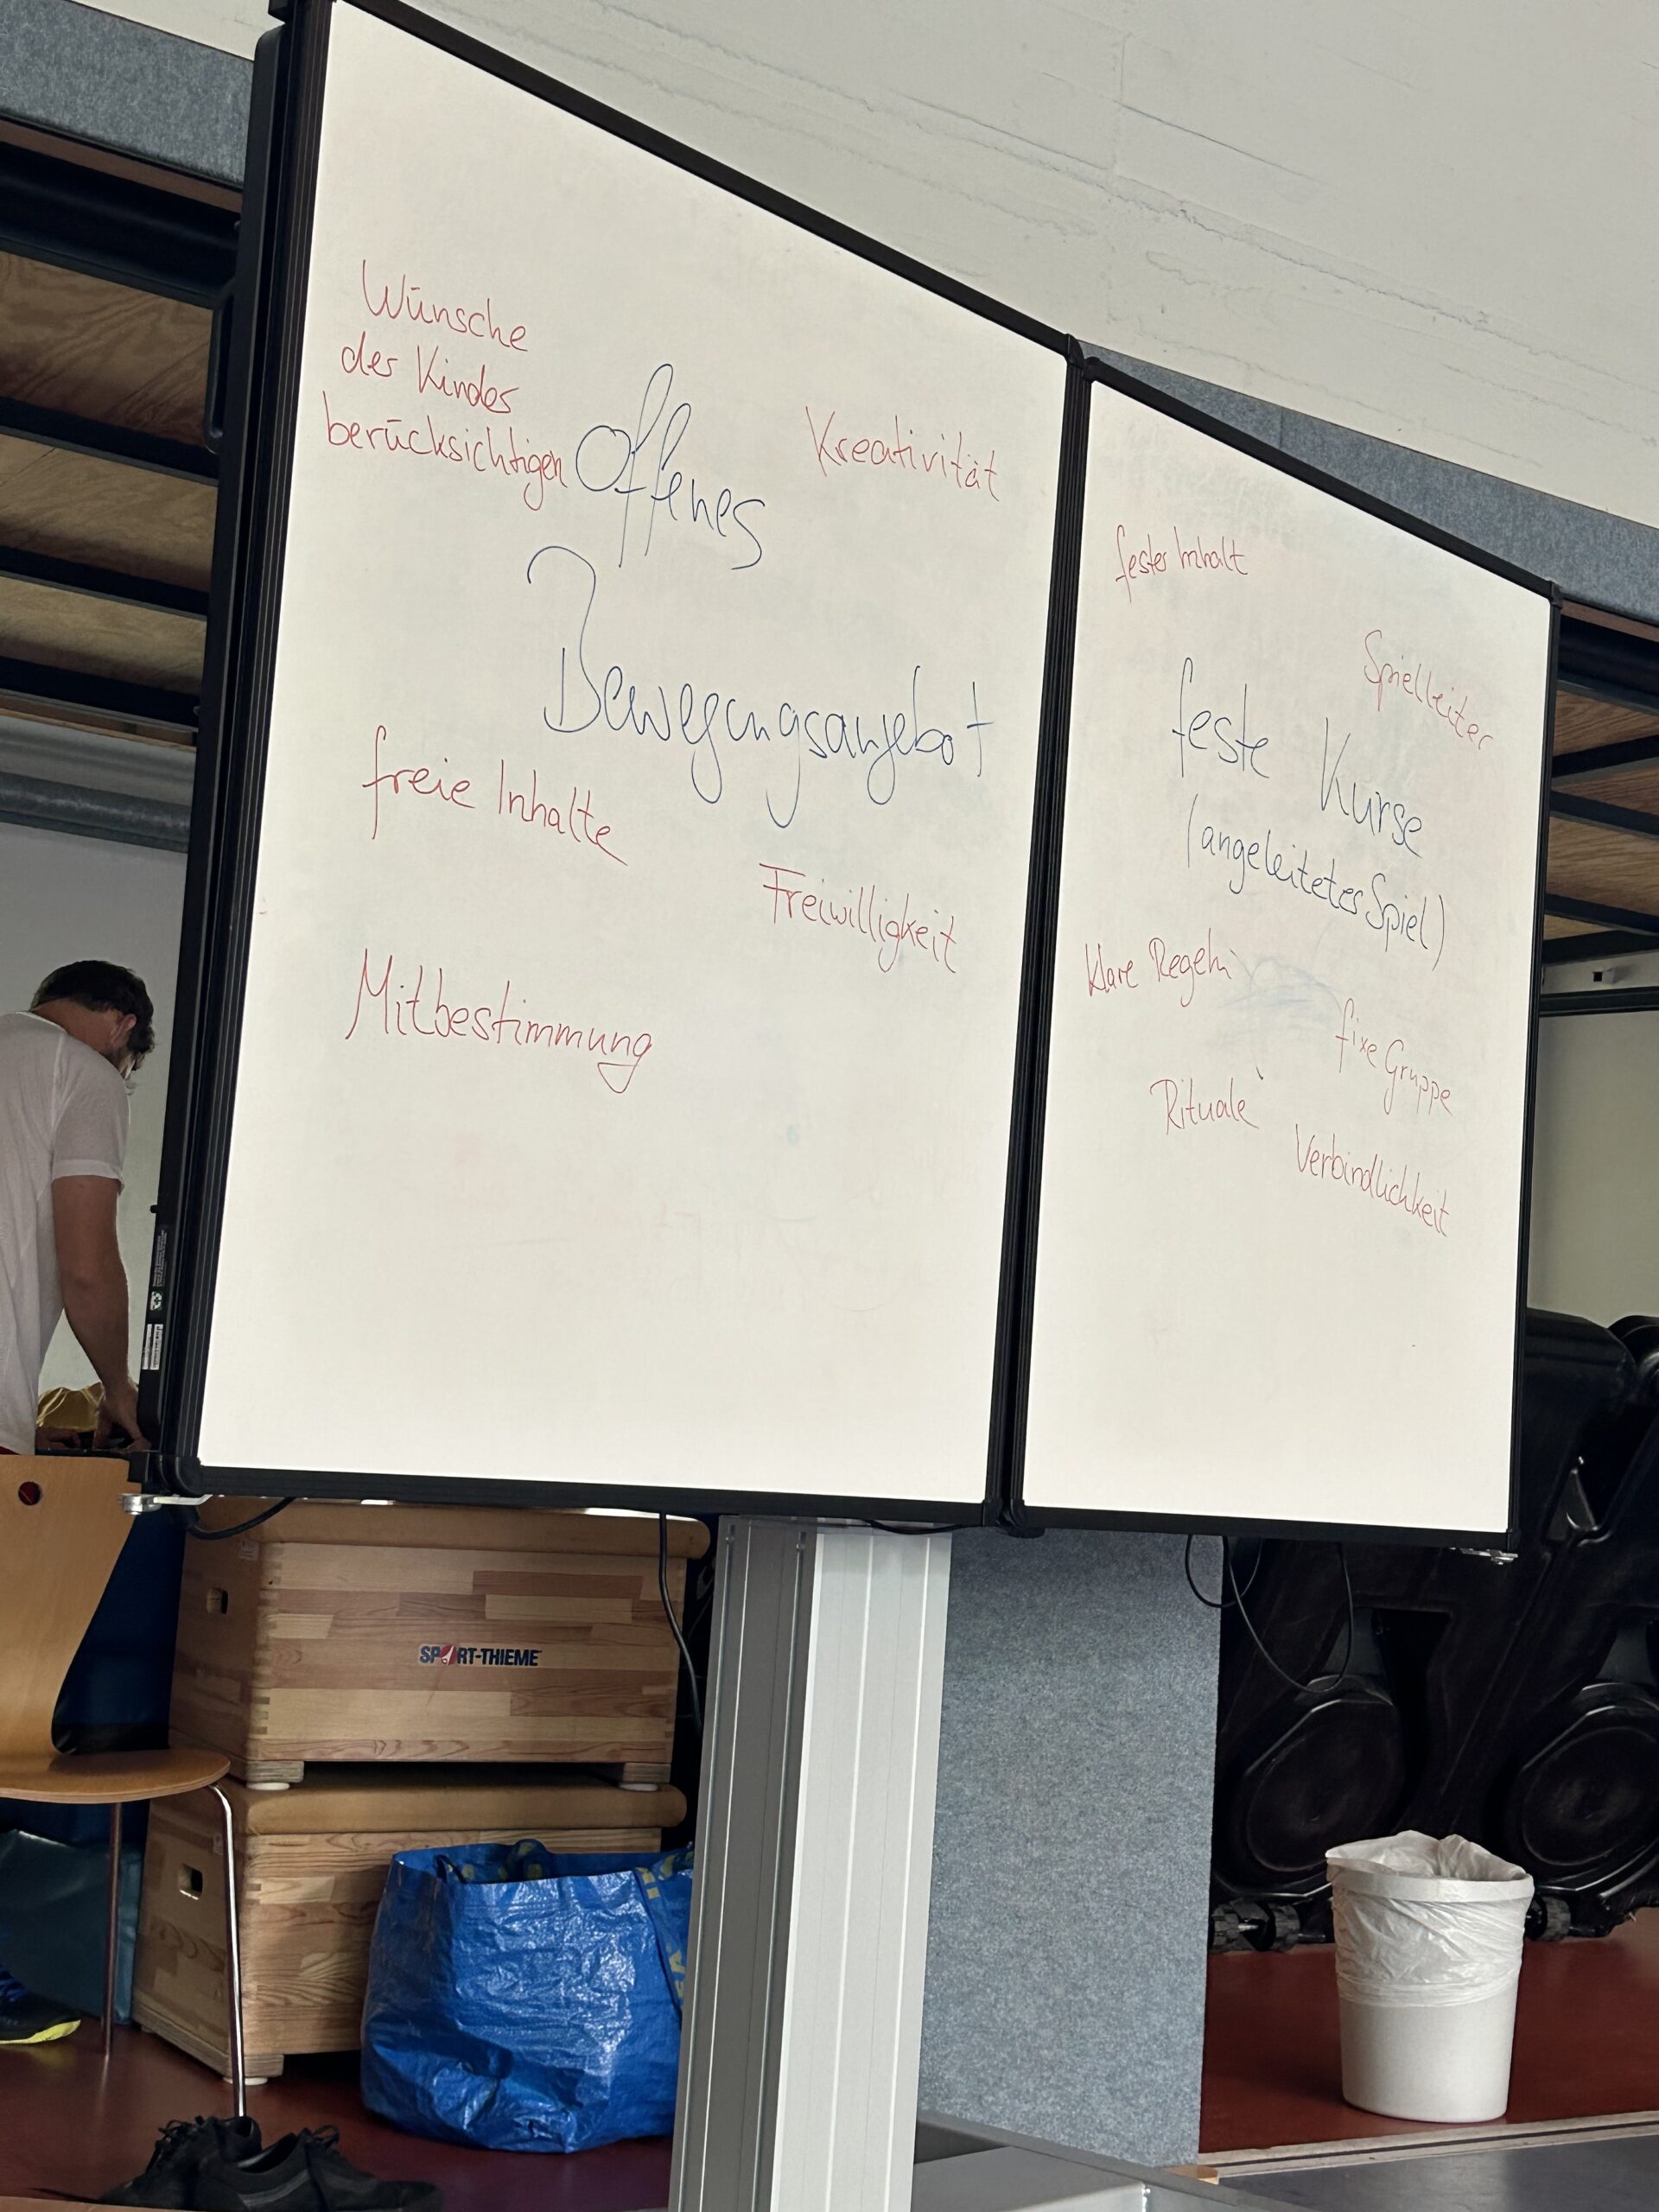 Wünsche
der Kinder
berücksichtigen
Offenes
Bewegungsangebot
Kreativität
freie Inhalte
Freiwilligkeit
Mitbestimmung
fester Inhalt
Spielleiter
feste Kurse
(angeleitetes Spiel)
klare Regeln
fixe Gruppe
Rituale
Verbindlichkeit
SPORT-THIEME